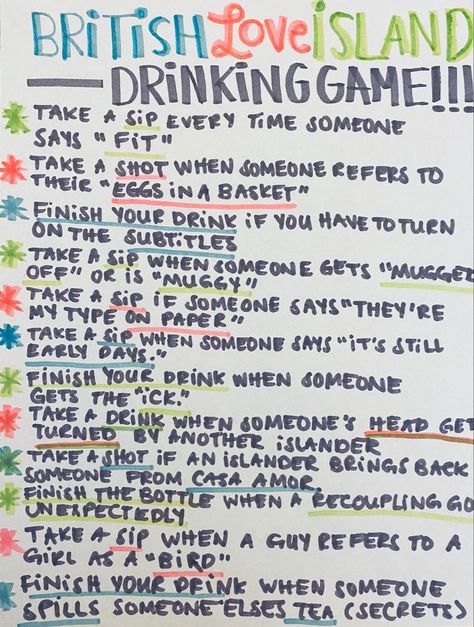 BRITISH LOVE ISLAND
DRINKING GAME!!!
TAKE A SIP EVERY TIME SOMEONE
SAYS "FIT"
TAKE A SHOT WHEN SOMEONE REFERS TO
THEIR "EGGS IN A BASKET"
FINISH YOUR DRINK IF YOU HAVE TO TURN
ON THE SUBTITLES
TAKE A SIP WHEN SOMEONE GETS "MUGGED
OFF" OR IS "MUGGY"
TAKE A SIP IF SOMEONE SAYS "THEY'RE
MY TYPE ON PAPER"
TAKE A SIP WHEN SOMEONE SAYS "IT'S STILL
EARLY DAYS."
FINISH YOUR DRINK WHEN SOMEONE
GETS THE "ICK."
TAKE A DRINK WHEN SOMEONE'S HEAD GET
TURNED BY ANOTHER ISLANDER
TAKE A SHOT IF AN ISLANDER BRINGS BACK
SOMEONE FROM CASA AMOR
FINISH THE BOTTLE WHEN A RECOUPLING GO
UNEXPECTEDLY
TAKE A SIP WHEN A GUY REFERS TO A
GIRL AS A "BIRD"
FINISH YOUR DRINK WHEN SOMEONE
SPILLS SOMEONE ELSES TEA (SECRETS)